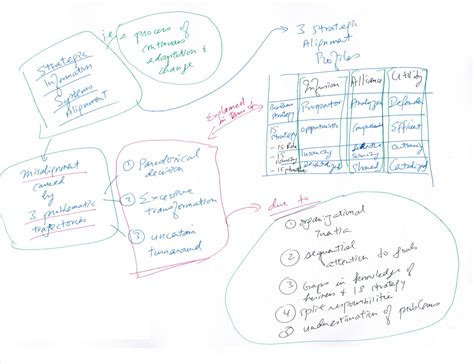 Strategic
Information
Systems
Alignment
i.e. a process of
continuous
adaptation &
change
3 Strategic
Alignment
Profiles
Infusion Alliance Utility
Business
strategy Prospector Analyzer Defender
IS
strategy opportunistic Comprehensive Efficient
- IS Role
- IS
Sourcing Insourcing Selective
Sourcing Outsourcing
- IS structure Decentralized Shared Centralized
Explained
in terms of
misalignment
caused
by
3 problematic
trajectories
① Paradoxical
decision
② Excessive
transformation
③ uncertain
turnaround
due to
① organizational
inertia
② sequential
attention to goals
③ Gaps in knowledge of
business & IS strategy
④ split responsibilities
⑤ underestimation of problems